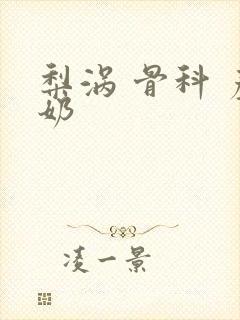 梨涡 骨科
奶
凌一景